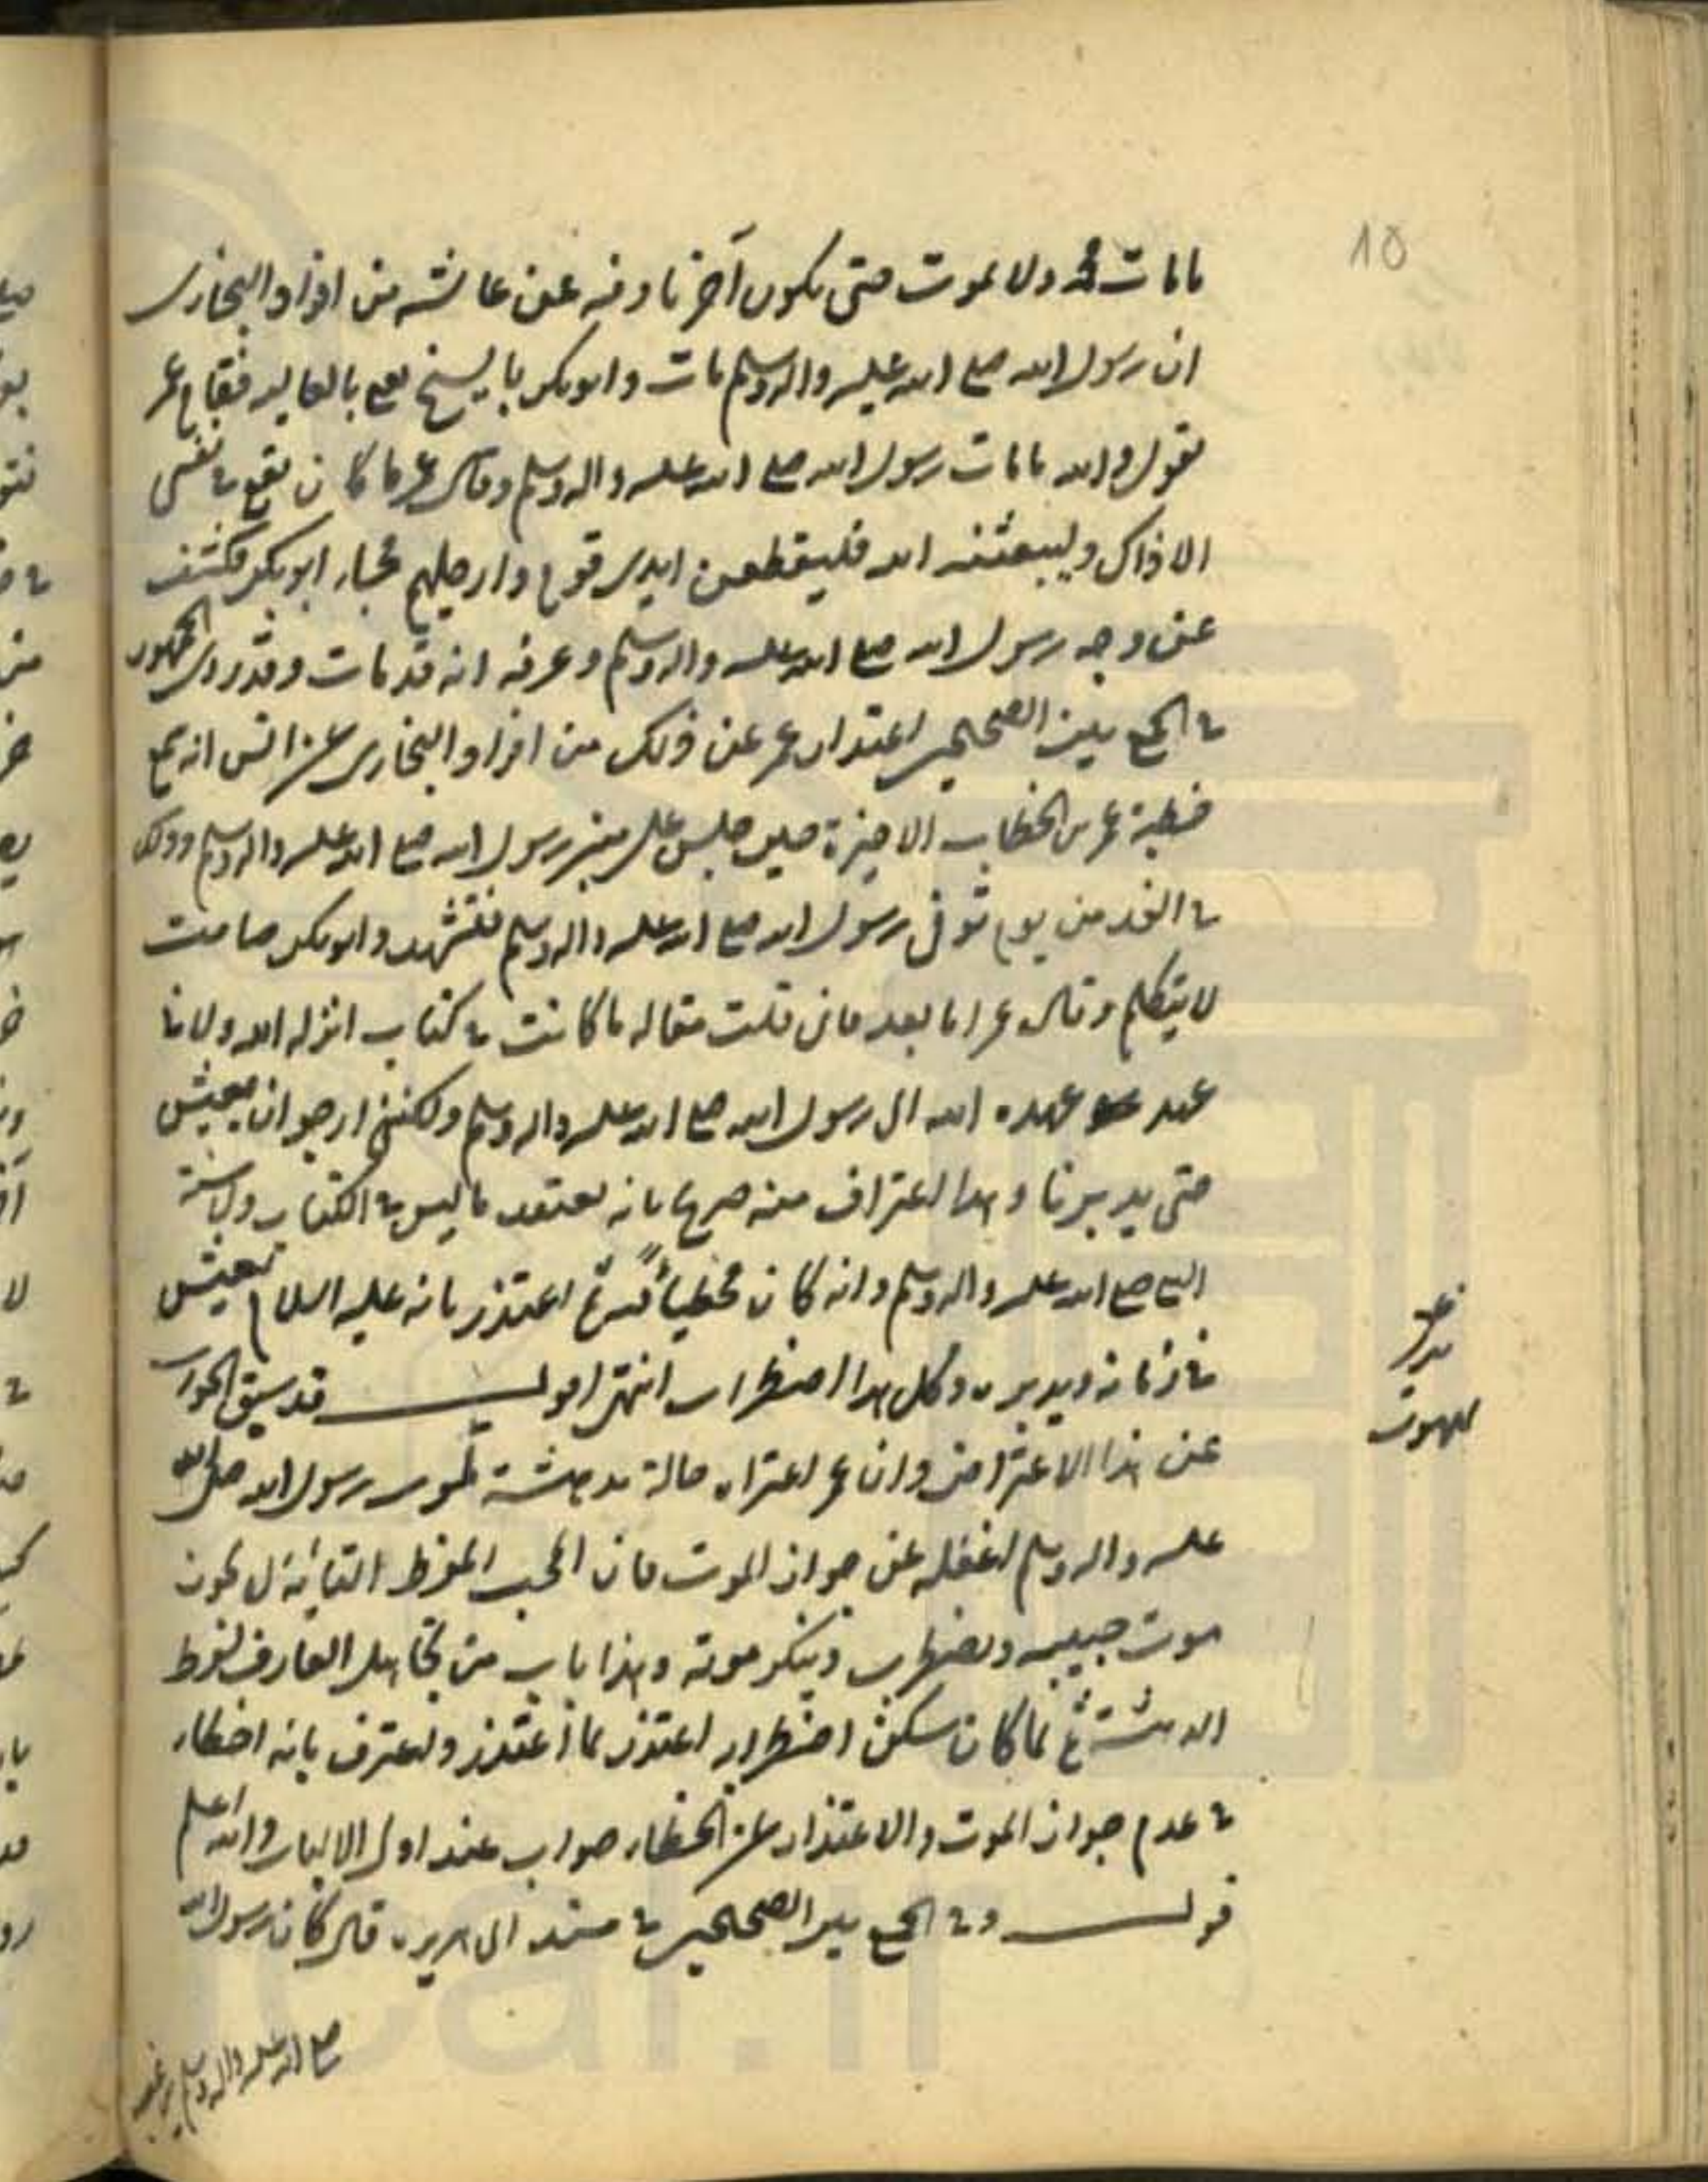 10
مامات محمد ولا يموت حتى يكون آخرنا وفيه عن عائشه من افراد البخارى
ان رسول الله صلع الله عليه واله وسلم مات وابوبكر بالسنح يعنى بالعاليه فقام عمر
يقول والله مامات رسول الله صلع الله عليه واله وسلم وقال عمر ما كان يقع فى نفسى
الا ذاك وليبعثنه الله فليقطعن ايدى قوم وارجلهم فجاء ابوبكر فكشف
عن وجه رسول الله صلع الله عليه واله وسلم وعرفه انه قد مات وقد روى الجمهور
فى الجمع بين الصحيحين اعتذار عمر عن ذلك من افراد البخارى عن انس انه سمع
خطبة عمر بن الخطاب الاخيرة حين جلس على منبر رسول الله صلع الله عليه واله وسلم وذلك
فى الغد من يوم توفى رسول الله صلع الله عليه واله وسلم فتشهد وابوبكر صامت
لا يتكلم وقال عمر اما بعد فانى قلت مقاله ما كانت فى كتاب انزله الله ولا فى
عهد عهده الله الى رسول الله صلع الله عليه واله وسلم ولكننى ارجو ان يعيش
حتى يدبرنا وهذا اعتراف منه صريحا بانه يعتقد ما ليس فى الكتاب ولا سنة
النبى صلع الله عليه واله وسلم وانه كان مخطيا ثم اعتذر بانه عليه السلام يعيش
فى زمانه ويدبره وكل هذا اضطراب انتهى اقول قد سبق الجواب
عن هذا الاعتراض وان عمر اعتراه حالة مدهشة لموت رسول الله صلى الله
عليه واله وسلم اغفله عن جواز الموت فان المحب المفرط
موت حبيبه ويضطرب وينكر موته وهذا باب من تجاهل العارف لفرط
الدهشة ثم لما كان سكن اضطرابه اعتذر بما اعتذر واعترف بانه اخطاء
فى عدم جواز الموت والاعتذار عن الخطاء صواب عند اولى الالباب والله اعلم
قوله وفى الجمع بين الصحيحين فى مسند ابى هريره قال كان رسول الله
صلع الله عليه واله وسلم